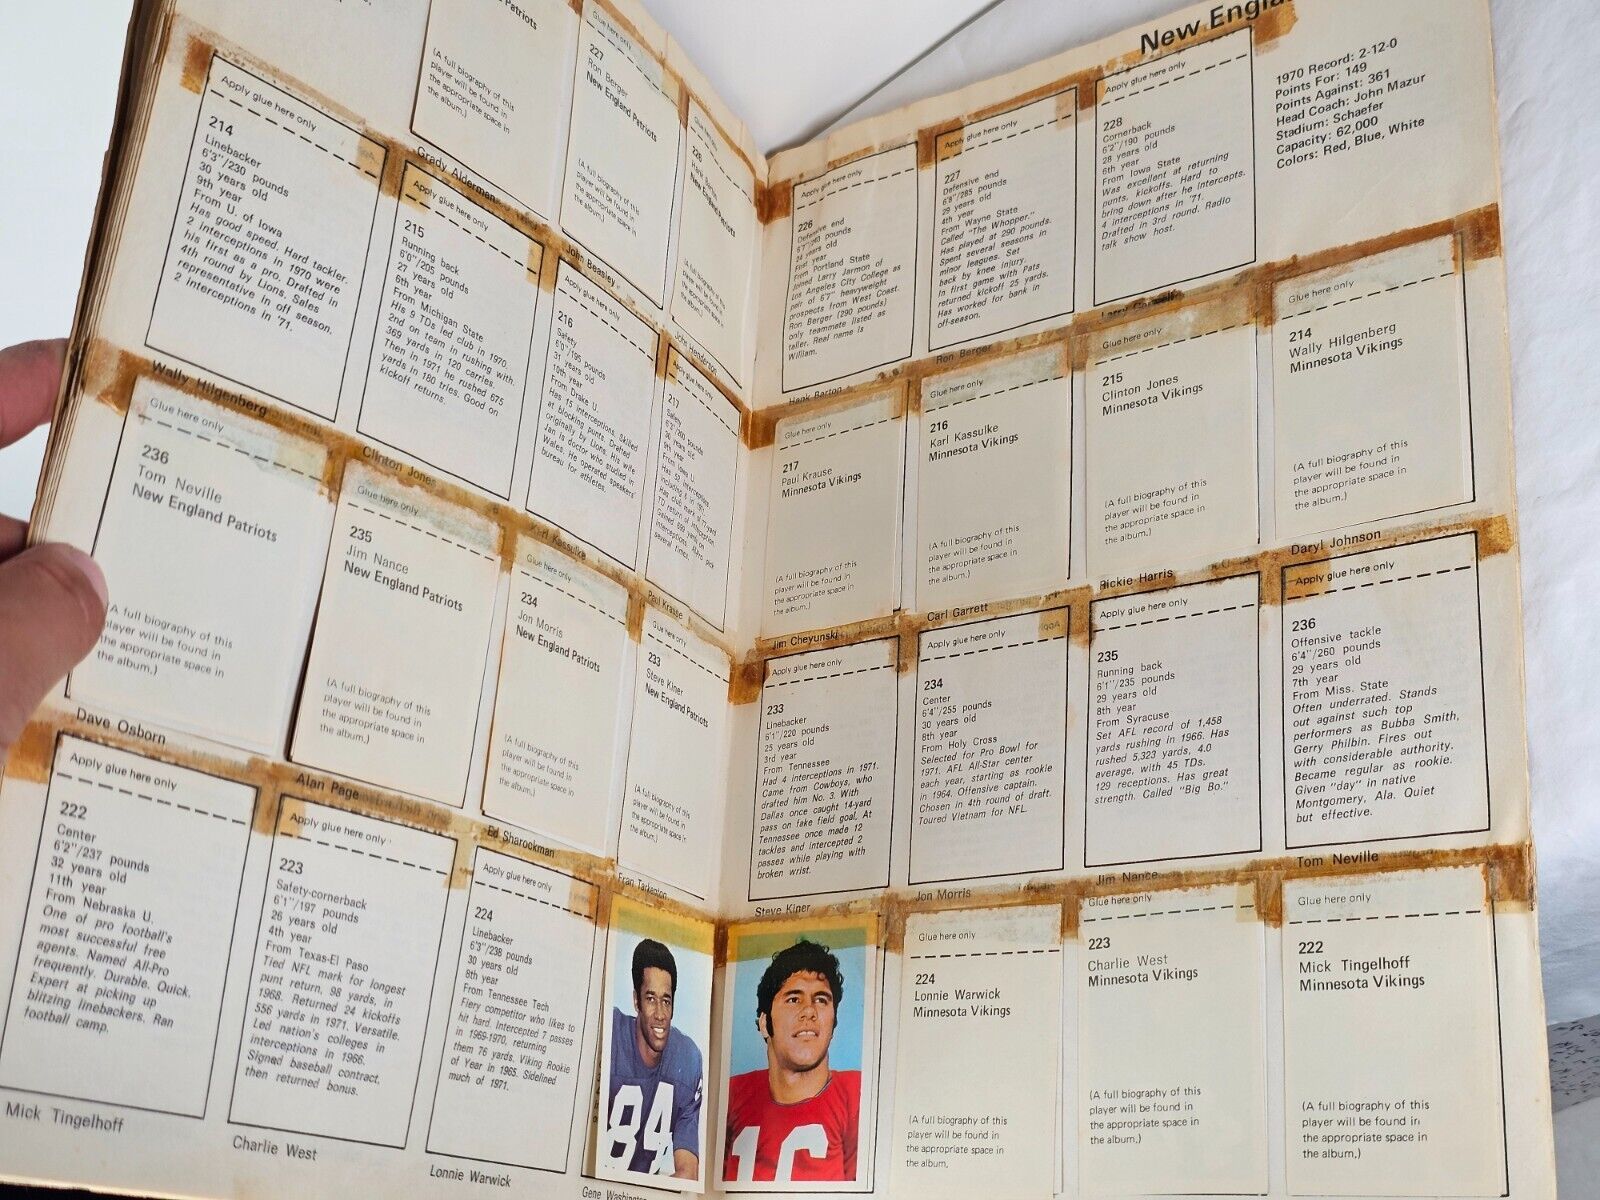 Patriots
(A full biography of this
player will be found in
the appropriate space in
the album.)
Glue here only
227
Ron Berger
New England Patriots
(A full biography of this
player will be found in
the appropriate space in
the album.)
Glue here only
226
Hank Barton
New England Patriots
(A full biography of this
player will be found in
the appropriate space in
the album.)
Apply glue here only
214
Linebacker
6'3"/230 pounds
30 years old
9th year
From U. of Iowa
Has good speed. Hard tackler.
2 interceptions in 1970 were
his first as a pro. Drafted in
4th round by Lions. Sales
representative in off season.
2 interceptions in '71.
Wally Hilgenberg
Grady Alderman
Apply glue here only
215
Running back
6'0"/205 pounds
27 years old
6th year
From Michigan State
His 9 TDs led club in 1970.
2nd on team in rushing with
369 yards in 120 carries.
Then in 1971 he rushed 675
yards in 180 tries. Good on
kickoff returns.
Clinton Jones
John Beasley
Apply glue here only
216
Safety
6'0"/195 pounds
31 years old
10th year
From Drake U.
Has 15 interceptions. Skilled
at blocking punts. Drafted
originally by Lions. His wife
Jan is doctor who studied in
Wales. He operated speakers'
bureau for athletes.
Karl Kassulke
John Henderson
Apply glue here only
217
Safety
6'3"/200 pounds
9th year
From Iowa U.
several times.
Paul Krause
Glue here only
236
Tom Neville
New England Patriots
(A full biography of this
player will be found in
the appropriate space in
the album.)
Dave Osborn
Glue here only
235
Jim Nance
New England Patriots
(A full biography of this
player will be found in
the appropriate space in
the album.)
Alan Page
Glue here only
234
Jon Morris
New England Patriots
(A full biography of this
player will be found in
the appropriate space in
the album.)
Ed Sharockman
Glue here only
233
Steve Kiner
New England Patriots
(A full biography of this
player will be found in
the appropriate space in
the album.)
Fran Tarkenton
Apply glue here only
222
Center
6'2"/237 pounds
32 years old
11th year
From Nebraska U.
One of pro football's
most successful free
agents. Named All-Pro
frequently. Durable. Quick.
Expert at picking up
blitzing linebackers. Ran
football camp.
Mick Tingelhoff
Apply glue here only
223
Safety-cornerback
6'1"/197 pounds
26 years old
4th year
From Texas-El Paso
Tied NFL mark for longest
punt return, 98 yards, in
1968. Returned 24 kickoffs
556 yards in 1971. Versatile.
Led nation's colleges in
interceptions in 1966.
Signed baseball contract,
then returned bonus.
Charlie West
Apply glue here only
224
Linebacker
6'3"/238 pounds
30 years old
8th year
From Tennessee Tech
Fiery competitor who likes to
hit hard. Intercepted 7 passes
in 1969-1970, returning
them 76 yards. Viking Rookie
of Year in 1965. Sidelined
much of 1971.
Lonnie Warwick
84
Gene Washington
New England
1970 Record: 2-12-0
Points For: 149
Points Against: 361
Head Coach: John Mazur
Stadium: Schaefer
Capacity: 62,000
Colors: Red, Blue, White
Apply glue here only
226
Defensive end
6'7"/263 pounds
24 years old
First year
From Portland State
Joined Larry Jarmon of
Los Angeles City College as
pair of 6'7" heavyweight
prospects from West Coast.
Ron Berger (290 pounds)
only teammate listed as
taller. Real name is
William.
Hank Barton
Apply glue here only
227
Defensive end
6'8"/285 pounds
29 years old
4th year
From Wayne State
Called "The Whopper."
Has played at 290 pounds.
Spent several seasons in
minor leagues. Set
back by knee injury.
In first game with Pats
returned kickoff 25 yards.
Has worked for bank in
off-season.
Ron Berger
Apply glue here only
228
Cornerback
6'2"/190 pounds
28 years old
6th year
From Iowa State
Was excellent at returning
punts, kickoffs. Hard to
bring down after he intercepts.
4 interceptions in '71.
Drafted in 3rd round. Radio
talk show host.
Larry Carwell
Glue here only
217
Paul Krause
Minnesota Vikings
(A full biography of this
player will be found in
the appropriate space in
the album.)
Jim Cheyunski
Glue here only
216
Karl Kassulke
Minnesota Vikings
(A full biography of this
player will be found in
the appropriate space in
the album.)
Carl Garrett
Glue here only
215
Clinton Jones
Minnesota Vikings
(A full biography of this
player will be found in
the appropriate space in
the album.)
Rickie Harris
Glue here only
214
Wally Hilgenberg
Minnesota Vikings
(A full biography of this
player will be found in
the appropriate space in
the album.)
Daryl Johnson
Apply glue here only
233
Linebacker
6'1"/220 pounds
25 years old
3rd year
From Tennessee
Had 4 interceptions in 1971.
Came from Cowboys, who
drafted him No. 3. With
Dallas once caught 14-yard
pass on fake field goal. At
Tennessee once made 12
tackles and intercepted 2
passes while playing with
broken wrist.
Steve Kiner
Apply glue here only
234
Center
6'4"/255 pounds
30 years old
8th year
From Holy Cross
Selected for Pro Bowl for
1971. AFL All-Star center
each year, starting as rookie
in 1964. Offensive captain.
Chosen in 4th round of draft.
Toured Vietnam for NFL.
Jon Morris
Apply glue here only
235
Running back
6'1"/235 pounds
29 years old
8th year
From Syracuse
Set AFL record of 1,458
yards rushing in 1966. Has
rushed 5,323 yards, 4.0
average, with 45 TDs.
129 receptions. Has great
strength. Called "Big Bo."
Jim Nance
Apply glue here only
236
Offensive tackle
6'4"/260 pounds
29 years old
7th year
From Miss. State
Often underrated. Stands
out against such top
performers as Bubba Smith,
Gerry Philbin. Fires out
with considerable authority.
Became regular as rookie.
Given "day" in native
Montgomery, Ala. Quiet
but effective.
Tom Neville
16
Glue here only
224
Lonnie Warwick
Minnesota Vikings
(A full biography of this
player will be found in
the appropriate space in
the album.
Glue here only
223
Charlie West
Minnesota Vikings
(A full biography of this
player will be found in
the appropriate space in
the album.)
Glue here only
222
Mick Tingelhoff
Minnesota Vikings
(A full biography of this
player will be found in
the appropriate space in
the album.)